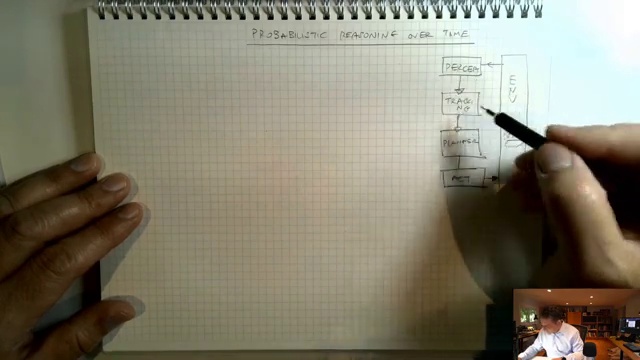 PROBABILISTIC REASONING OVER TIME
PERCEP
ENV
TRACKI
NG
PLANNER